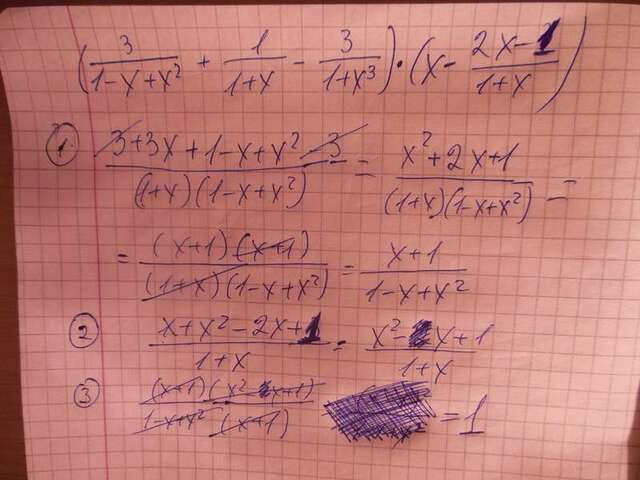 (3/(1-x+x²) + 1/(1+x) - 3/(1+x³)) · (x - (2x-1)/(1+x))
① (3+3x+1-x+x²-3)/((1+x)(1-x+x²)) = (x²+2x+1)/((1+x)(1-x+x²)) =
= ((x+1)(x+1))/((1+x)(1-x+x²)) = (x+1)/(1-x+x²)
② (x+x²-2x+1)/(1+x) = (x²-x+1)/(1+x)
③ ((x+1)(x²-x+1))/(1-x+x² (x+1)) = 1